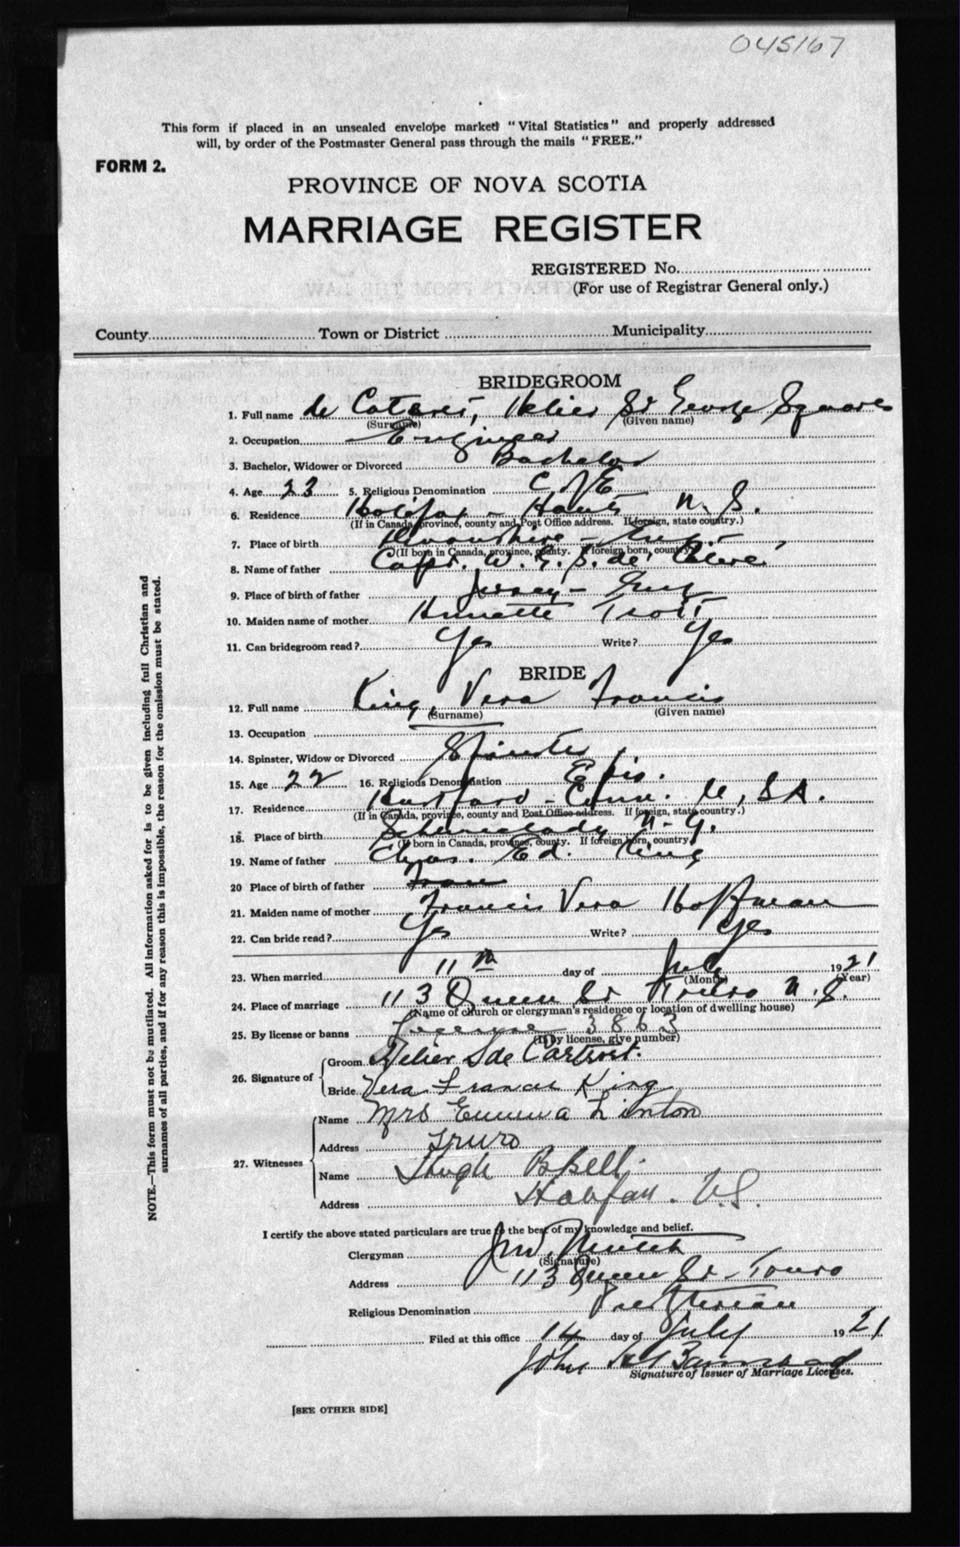 045167
This form if placed in an unsealed envelope marked "Vital Statistics" and properly addressed
will, by order of the Postmaster General pass through the mails "FREE."
FORM 2.
PROVINCE OF NOVA SCOTIA
MARRIAGE REGISTER
REGISTERED No.
(For use of Registrar General only.)
County Town or District Municipality
BRIDEGROOM
1. Full name de Helier St George
(Surname) (Given name)
2. Occupation Engineer
3. Bachelor, Widower or Divorced Bachelor
4. Age 23 5. Religious Denomination C of E
6. Residence Halifax - Hants N. S.
(If in Canada, province, county and Post Office address. If foreign, state country.)
7. Place of birth Devonshire - Eng.
(If born in Canada, province, county. If foreign born, country)
8. Name of father Capt. W. S. de
9. Place of birth of father Jersey - Eng
10. Maiden name of mother Annette Trott
11. Can bridegroom read? Yes Write? Yes
BRIDE
12. Full name King, Vera Francis
(Surname) (Given name)
13. Occupation
14. Spinster, Widow or Divorced Spinster
15. Age 22 16. Religious Denomination Epis.
17. Residence Hartford - Conn. U. S. A.
(If in Canada, province, county and Post Office address. If foreign, state country.)
18. Place of birth Schenectady N. Y.
(If born in Canada, province, county. If foreign born, country)
19. Name of father Chas. Ed. King
20 Place of birth of father
21. Maiden name of mother Francis Vera Hoffman
22. Can bride read? Yes Write? Yes
23. When married 11th day of July 1921
(Month) (Year)
24. Place of marriage 113 Queen St Truro N. S.
(Name of church or clergyman's residence or location of dwelling house)
25. By license or banns License 3863
(If by license, give number)
26. Signature of
Groom Helier de
Bride Vera Francis King
27. Witnesses
Name Mrs Emma Linton
Address Truro
Name Hugh Bell
Address Halifax. N.S.
I certify the above stated particulars are true to the best of my knowledge and belief.
Clergyman
(Signature)
Address 113 Queen St - Truro
Religious Denomination Presbyterian
Filed at this office 14 day of July 1921
John
Signature of Issuer of Marriage Licenses.
[SEE OTHER SIDE]
NOTE.—This form must not be mutilated. All information asked for is to be given including full Christian and
surnames of all parties, and if for any reason this is impossible, the reason for the omission must be stated.